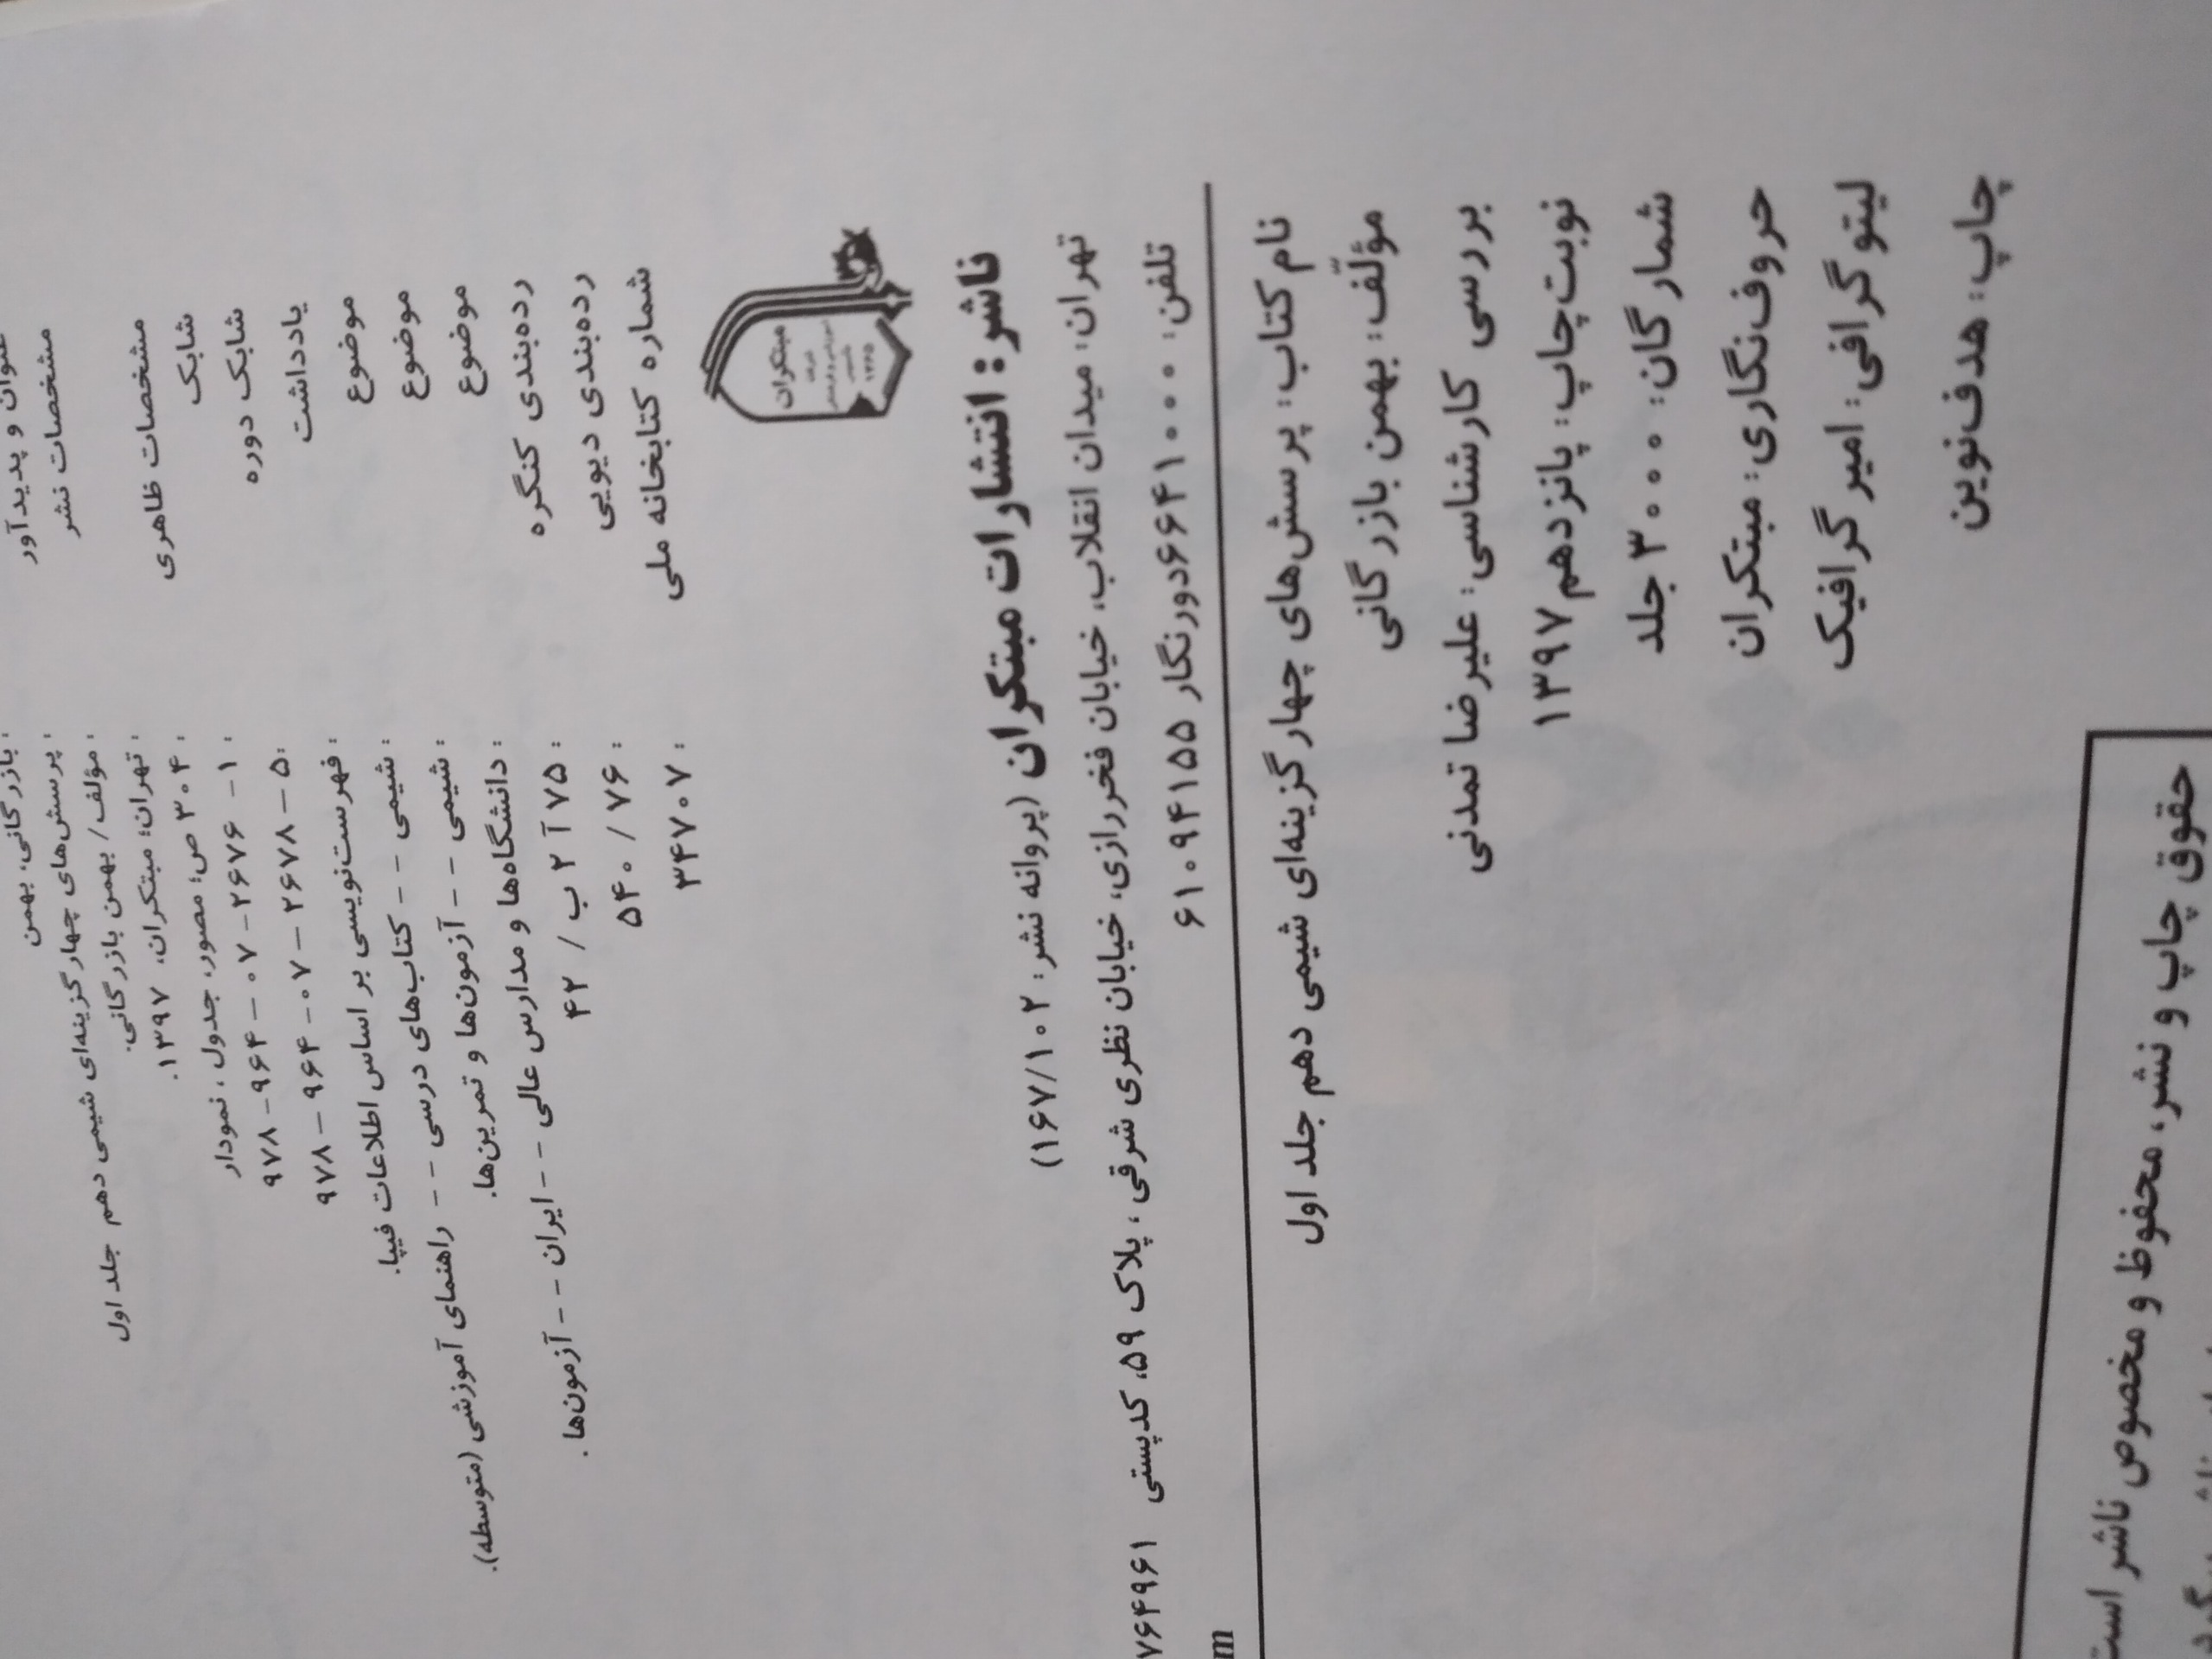 : بازرگانی، بهمن
عنوان و پدیدآور : پرسش‌های چهارگزینه‌ای شیمی دهم جلد اول
: مؤلف / بهمن بازرگانی.
مشخصات نشر : تهران؛ مبتکران، ۱۳۹۷.
مشخصات ظاهری : ۳۰۴ ص؛ مصور، جدول، نمودار
شابک : ۱- ۲۶۷۶ - ۰۷ - ۹۶۴ - ۹۷۸
شابک دوره : ۵ - ۲۶۷۸ - ۰۷ - ۹۶۴ - ۹۷۸
یادداشت : فهرست‌نویسی بر اساس اطلاعات فیپا.
موضوع : شیمی - - کتاب‌های درسی - - راهنمای آموزشی (متوسطه).
موضوع : شیمی - - آزمون‌ها و تمرین‌ها.
موضوع : دانشگاه‌ها و مدارس عالی - - ایران - - آزمون‌ها.
رده‌بندی کنگره : ۷۵ آ ۲ ب / ۴۲
رده‌بندی دیویی : ۷۶ / ۵۴۰
شماره کتابخانه ملی : ۳۴۷۰۷
مبتکران
ناشر : انتشارات مبتکران (پروانه نشر: ۱۶۷/۱۰۲)
تهران: میدان انقلاب، خیابان فخررازی، خیابان نظری شرقی، پلاک ۵۹، کدپستی ۷۶۴۹۶۱
تلفن: ۶۶۴۱۰۰۰۰ دورنگار ۶۱۰۹۴۱۵۵
m
نام کتاب: پرسش‌های چهارگزینه‌ای شیمی دهم جلد اول
مؤلّف: بهمن بازرگانی
بررسی کارشناسی: علیرضا تمدنی
نوبت‌چاپ: پانزدهم ۱۳۹۷
شمارگان: ۳۰۰۰ جلد
حروف‌نگاری: مبتکران
لیتوگرافی: امیر گرافیک
چاپ: هدف‌نوین
حقوق چاپ و نشر، محفوظ و مخصوص ناشر است